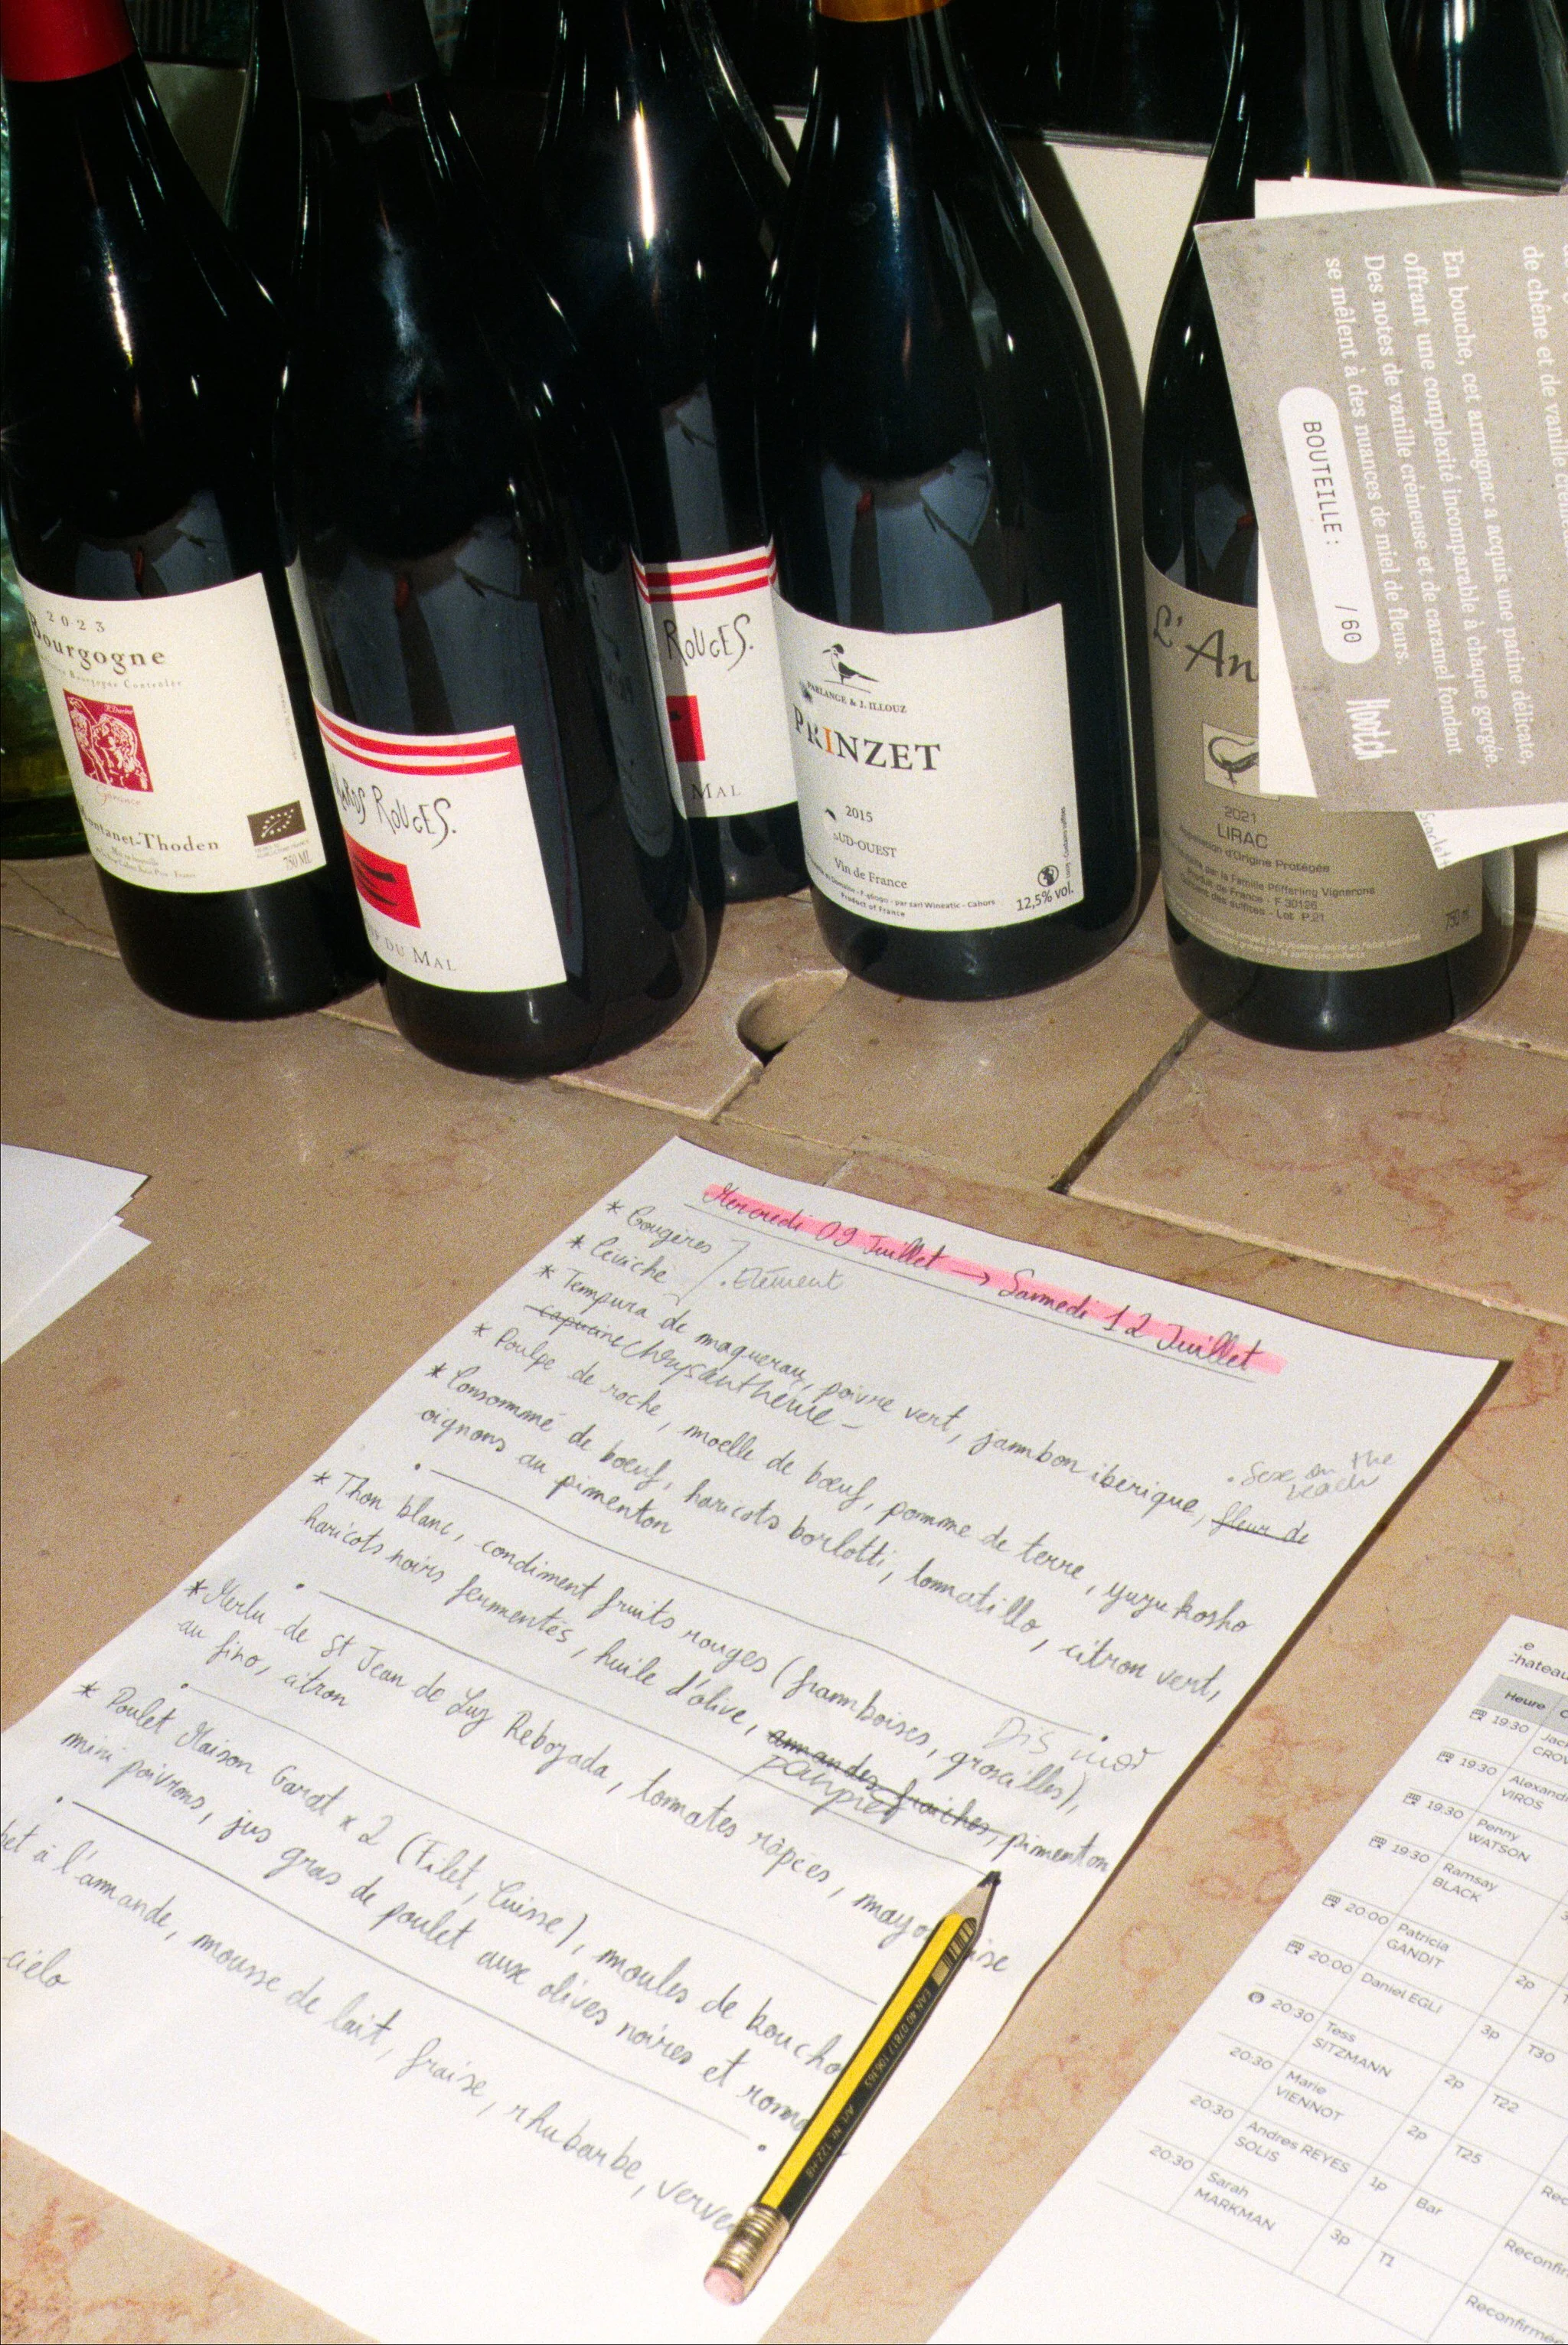 2023
Bourgogne
Montanet-Thoden
750 ML
ROUGES.
DU MAL
ROUGES.
MAL
PARLANGE & J. ILLOUZ
PRINZET
2015
SUD-OUEST
Vin de France
Product of France
12,5% vol.
L'An
2021
LIRAC
Appellation d'Origine Protégée
par la Famille Pfifferling Vignerons
Produit de France - F 30126
Contient des sulfites - Lot P.21
de chêne et de vanille
En bouche, cet armagnac a acquis une patine délicate,
offrant une complexité incomparable à chaque gorgée.
Des notes de vanille crémeuse et de caramel fondant
se mêlent à des nuances de miel de fleurs.
BOUTEILLE : /60
Mercredi 09 Juillet → Samedi 12 Juillet
* Gougères
* Ceviche
. Elément
* Tempura de maquereau, poivre vert, jambon iberique, fleur de
capucine Chrysanthème -
. Sexe on the
beach
* Poulpe de roche, moelle de bœuf, pomme de terre, yuzu kosho
* Consommé de bœuf, haricots borlotti, tomatillo, citron vert,
oignons au pimenton
* Thon blanc, condiment fruits rouges (framboises, groseilles),
haricots noirs fermentés, huile d'olive, amandes fraiches, pimenton
* Merlu de St Jean de Luz Rebozada, tomates râpées, mayo ise
au fino, citron
* Poulet Maison Garat x 2 (Filet, Cuisse), moules de boucho
mini poivrons, jus gras de poulet aux olives noires et roma
bet à l'amande, mousse de lait, fraise, rhubarbe, verve
-cielo
EAN 40 07817 106165
Art. Nr. 122-HB
Heure
19:30
CROW
19:30 Alexand
VIROS
19:30 Penny
WATSON
19:30 Ramsay
BLACK
20:00 Patricia
GANDIT 2p
20:00 Daniel EGLI 3p T30
20:30 Tess
SITZMANN 2p T22
20:30 Marie
VIENNOT 2p T25
20:30 Andres REYES
SOLIS 1p Bar Reconfir
20:30 Sarah
MARKMAN 3p T1 Reconfirm